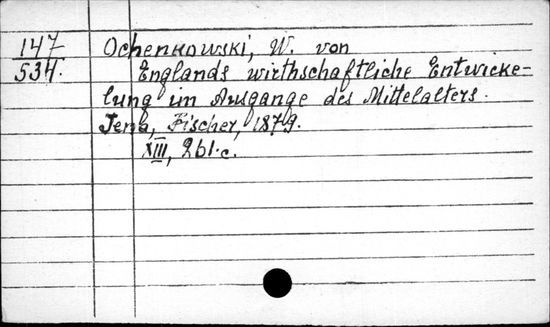 147 Ochenkowski, W. von
534. Englands wirthschaftliche Entwicke-
lung im Ausgange des Mittelalters.
Jena, Fischer, 1879.
XIII, 261.c.